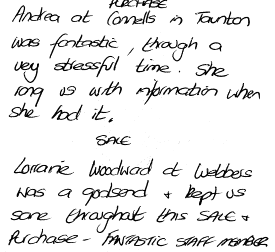 PURCHASE
Andrea at Connells in Taunton
was fantastic, through a
very stressful time. She
rang us with information when
she had it.
SALE
Lorraine Woodward at Webbers
was a godsend + kept us
sane throughout this SALE +
Purchase - FANTASTIC STAFF MEMBER